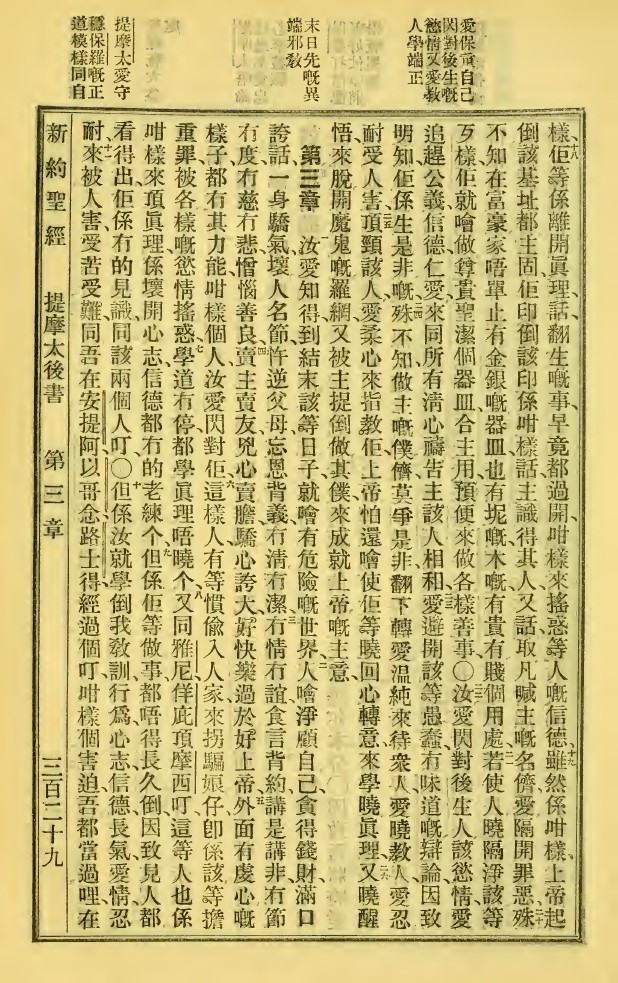 愛保童自己
閃對後生嘅
慾情又愛教
人學端正
末日先嘅異
端邪敎
提摩太愛守
穩保羅嘅正
道模樣同自
樣佢等係離開眞理話翻生嘅事早竟都過開咁樣來搖惑等人嘅信德雖然係咁樣上帝起
倒該基址都主固佢印倒該印係咁樣話主識得其人又話取凡喊主嘅名儕愛隔開罪惡殊
不知在富豪家唔單止有金銀嘅器皿也有坭嘅木嘅有貴有賤個用處若使人曉隔淨該等
歹樣佢就噲做尊貴聖潔個器皿合主用預便來做各樣善事〇汝愛閃對後生人該慾情愛
追趕公義信德仁愛來同所有淸心禱告主該人相和愛避開該等愚蠢冇味道嘅辯論因致
明知佢係生是非嘅殊不知做主嘅僕儕莫爭是非翻下轉愛温純來待衆人愛曉教人愛忍
耐受人害頂頸該人愛柔心來指教佢上帝怕還噲使佢等曉回心轉意來學曉眞理又曉醒
悟來脫開魔鬼嘅羅網又被主捉倒做其僕來成就上帝嘅主意
第三章 汝愛知得到結末該等日子就噲有危險嘅世界人噲淨顧自己貪得錢財滿口
誇話一身驕氣壞人名節忤逆父母忘恩背義冇淸冇潔冇情冇誼食言背約講是講非冇節
冇度冇慈冇悲憎惱善良賣主賣友兇心賣膽驕心誇大好快樂過於好上帝外面有虔心嘅
樣子都冇其力能咁樣個人汝愛閃對佢這樣人有等慣偸入人家來拐騙娘仔卽係該等擔
重罪被各樣嘅慾情搖惑學道冇停都學眞理唔曉个又同雅尼佯庇頂摩西叮這等人也係
咁樣來頂眞理係壞開心志信德都冇的老練个但係佢等做事都唔得長久倒因致見人都
看得出佢係冇的見識同該兩個人叮〇但係汝就學倒我教訓行爲心志信德長氣愛情忍
耐來被人害受苦受難同吾在安提阿以哥念路士得經過個叮咁樣個害迫吾都當過哩在
新約聖經 提摩太後書 第三章 三百二十九